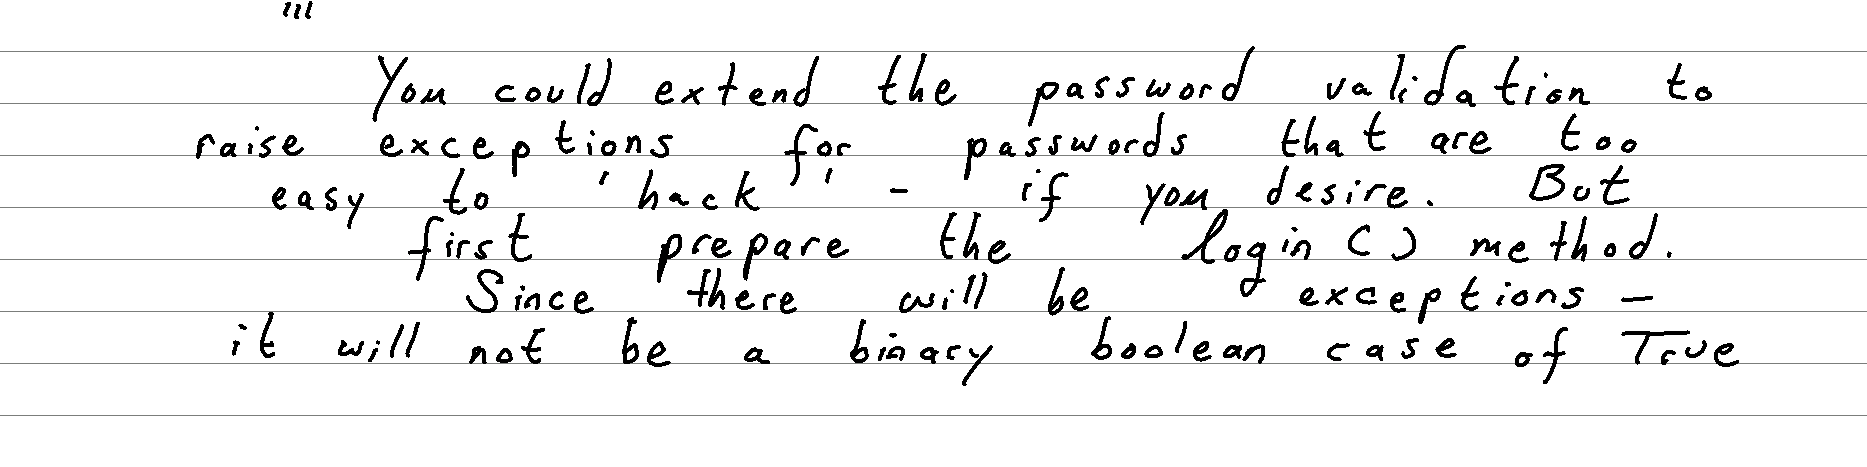 '''
You could extend the password validation to
raise exceptions for passwords that are too
easy to 'hack' - if you desire. But
first prepare the login() method.
Since there will be exceptions -
it will not be a binary boolean case of True